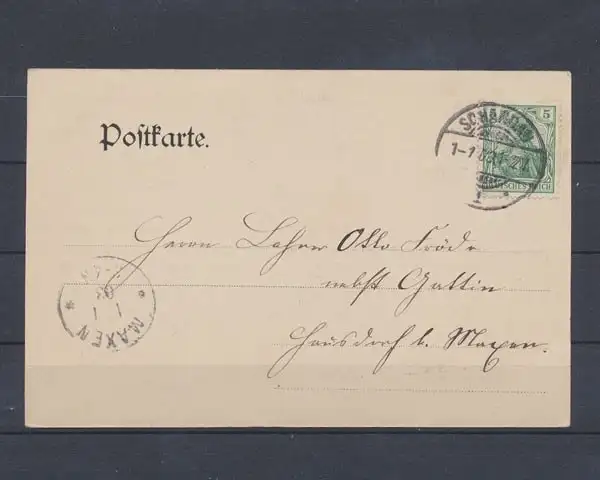 Postkarte.
5
SCHANDAU
DEUTSCHES REICH
Herrn Lehrer Otto Fröde
nebst Gattin
Hausdorf b. Maxen.
MAXEN